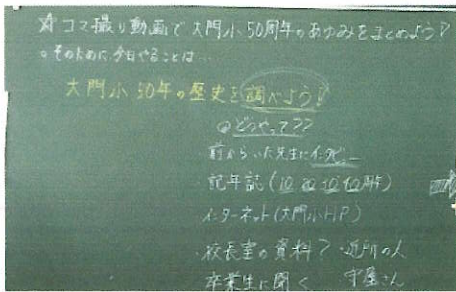 ☆コマ撮り動画で大門小50周年のあゆみをまとめよう!
○そのために今日やることは…
大門小50年の歴史を調べよう!
どうやって??
前からいた先生にインタビュー
記年誌(10 20 30 40周年)
インターネット(大門小HP)
・校長室の資料? ・近所の人
卒業生に聞く 守屋さん